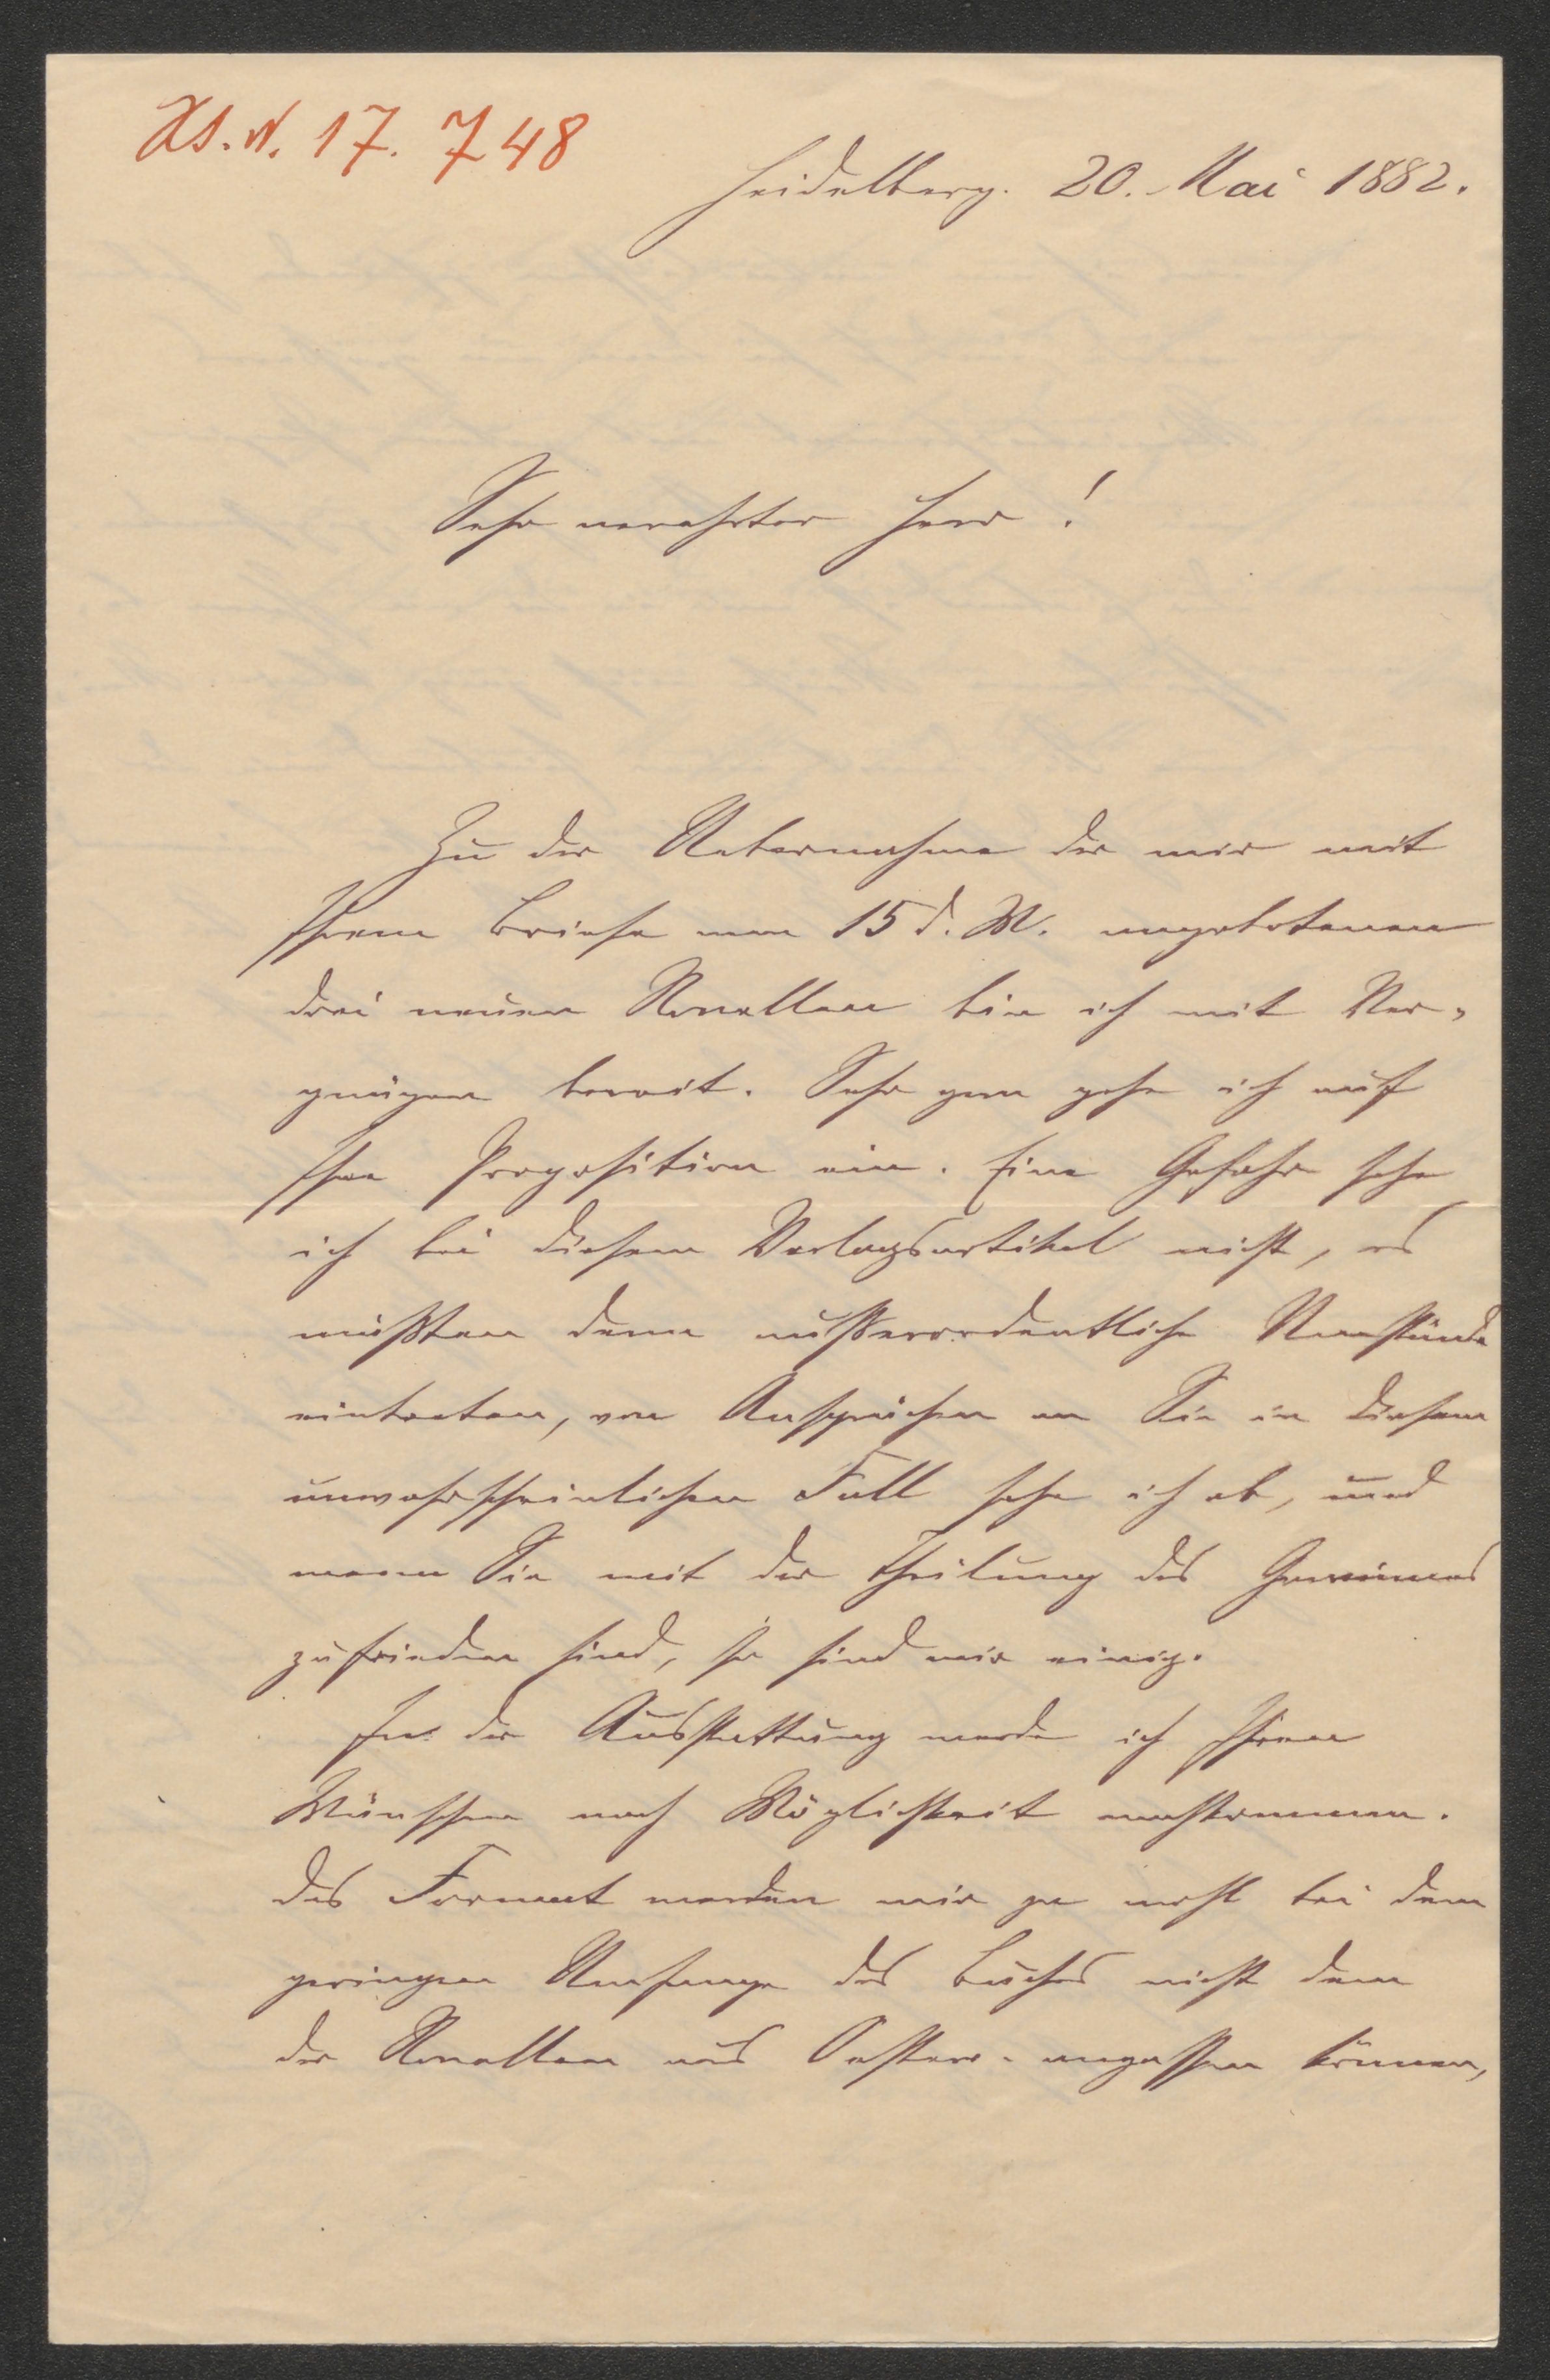 Hs. N. 17.748
Heidelberg. 20. Mai 1882.
Sehr verehrter Herr!
Zu der Uebernahme der mir mit
Ihrem Briefe vom 15 d. M. angebotenen
drei neuen Novellen bin ich mit Ver-
gnügen bereit. Sehr gern gehe ich auf
Ihre Proposition ein. Eine Gefahr sehe
ich bei diesem Verlagsartikel nicht, es
müßten denn außerordentliche Umstände
eintreten, von Ansprüchen an Sie in diesem
unwahrscheinlichen Fall sehe ich ab, und
wenn Sie mit der Theilung des Gewinnes
zufrieden sind, so sind wir einig.
In der Ausstattung werde ich Ihren
Wünschen nach Möglichkeit nachkommen.
Das Format werden wir ja wohl bei dem
geringen Umfange des Buches nicht dem
der Novellen aus Oesterr. anpassen können,